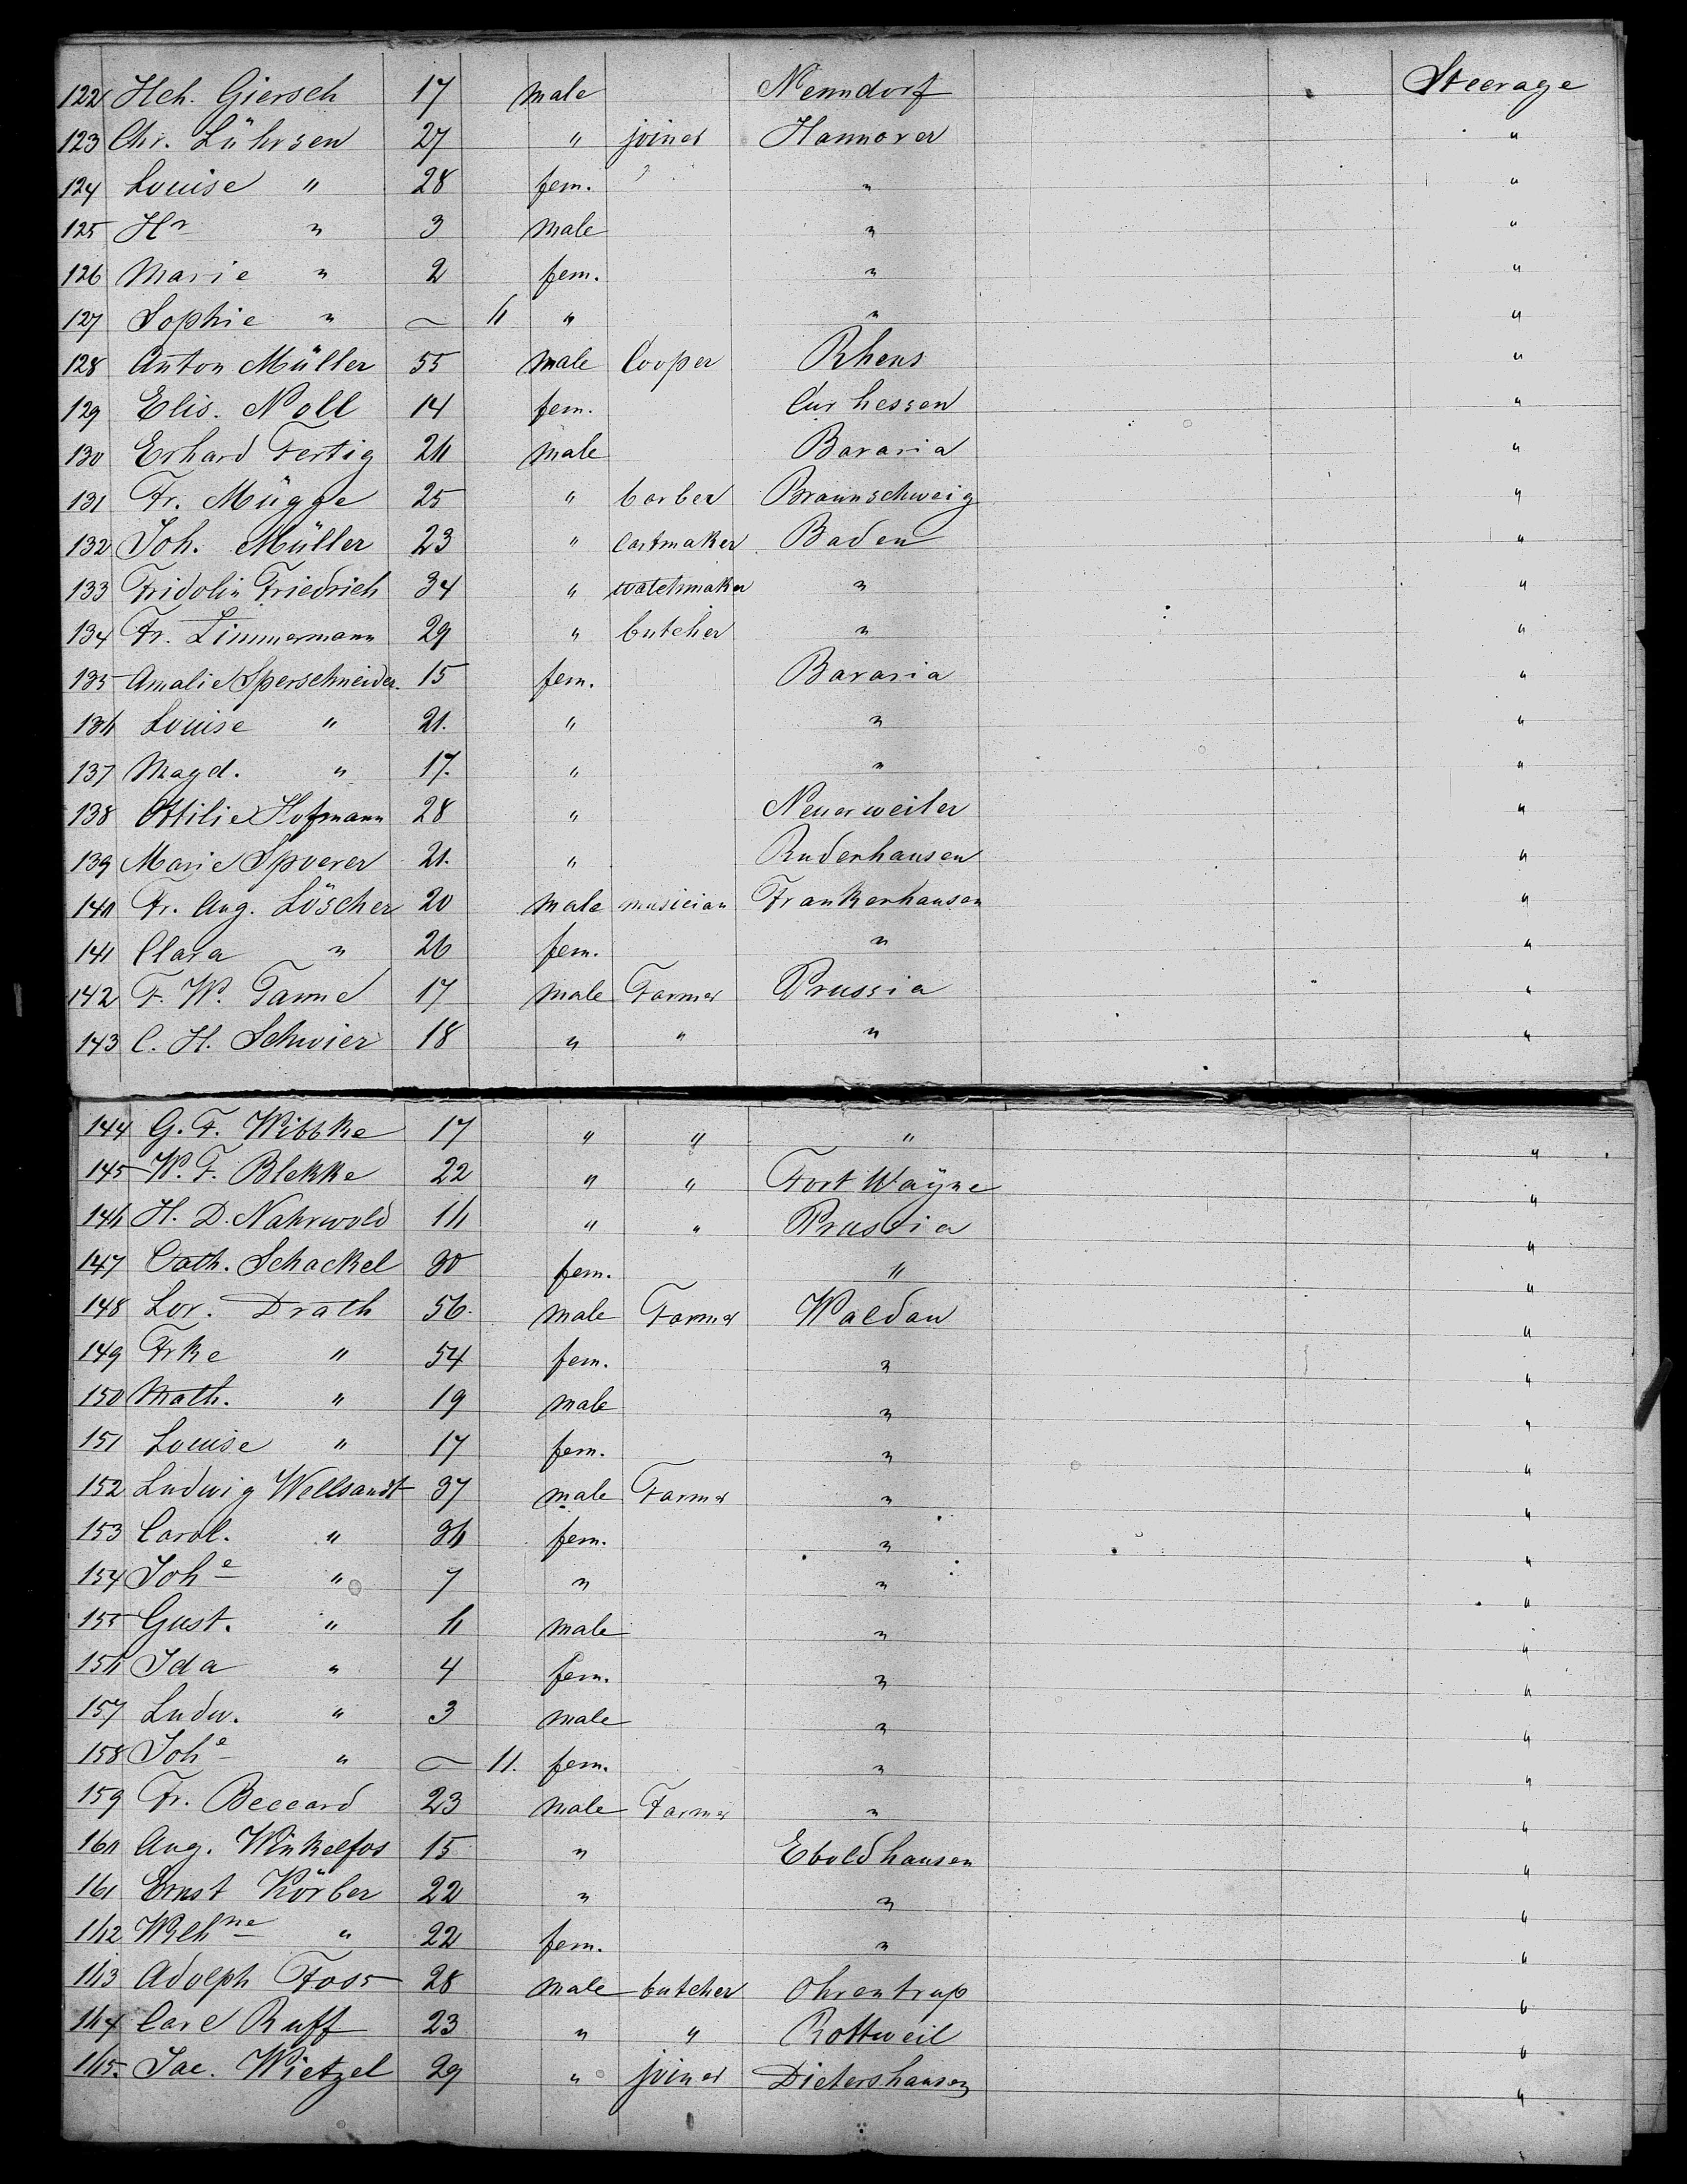 122 Hch. Giersch 17 male Nenndorf Steerage
123 Chr. Lührsen 27 " joiner Hannover "
124 Louise " 28 fem. " "
125 Hr " 3 male " "
126 Marie " 2 fem. " "
127 Sophie " — 6 " " "
128 Anton Müller 55 male Cooper Rhens "
129 Elis. Noll 14 fem. Curhessen "
130 Erhard Fertig 26 male Bavaria "
131 Fr. Mügge 25 " barber Braunschweig "
132 Joh. Müller 23 " Cartmaker Baden "
133 Fridolin Friedrich 34 " watchmaker " "
134 Fr. Zimmermann 29 " butcher " "
135 Amalie Sperschneider. 15 fem. Bavaria "
136 Louise " 21. " " "
137 Magd. " 17. " " "
138 Ottilie Hofmann 28 " Neuerweiler "
139 Marie Spoerer 21. " Ruderhausen "
140 Fr. Aug. Löscher 20 male musician Frankenhausen "
141 Clara " 26 fem. " "
142 F. W. Tanne 17 male Farmer Prussia "
143 C. H. Schwier 18 " " " "
144 G. F. Wibbke 17 " " " "
145 W. F. Blekke 22 " " Fort Wayne "
146 H. D. Nahrwold 16 " " Prussia "
147 Cath. Schackel 30 fem. " "
148 Lor. Drath 56. male Farmer Waldau "
149 Frke " 54 fem. " "
150 Math. " 19 male " "
151 Louise " 17 fem. " "
152 Ludwig Wellsandt 37 male Farmer " "
153 Carol. " 36 fem. " "
154 Johe " 7 " " "
155 Gust. " 6 male " "
156 Ida " 4 fem. " "
157 Ludw. " 3 male " "
158 Johe " — 11. fem. " "
159 Fr. Beccard 23 male Farmer " "
160 Aug. Winkelfos 15 " Eboldhausen "
161 Ernst Körber 22 " " "
162 Wilhne " 22 fem. " "
163 Adolph Foss 28 male butcher Ohrentrup "
164 Carl Ruff 23 " " Rottweil "
165. Jac. Wietzel 29 " joiner Dietershausen "